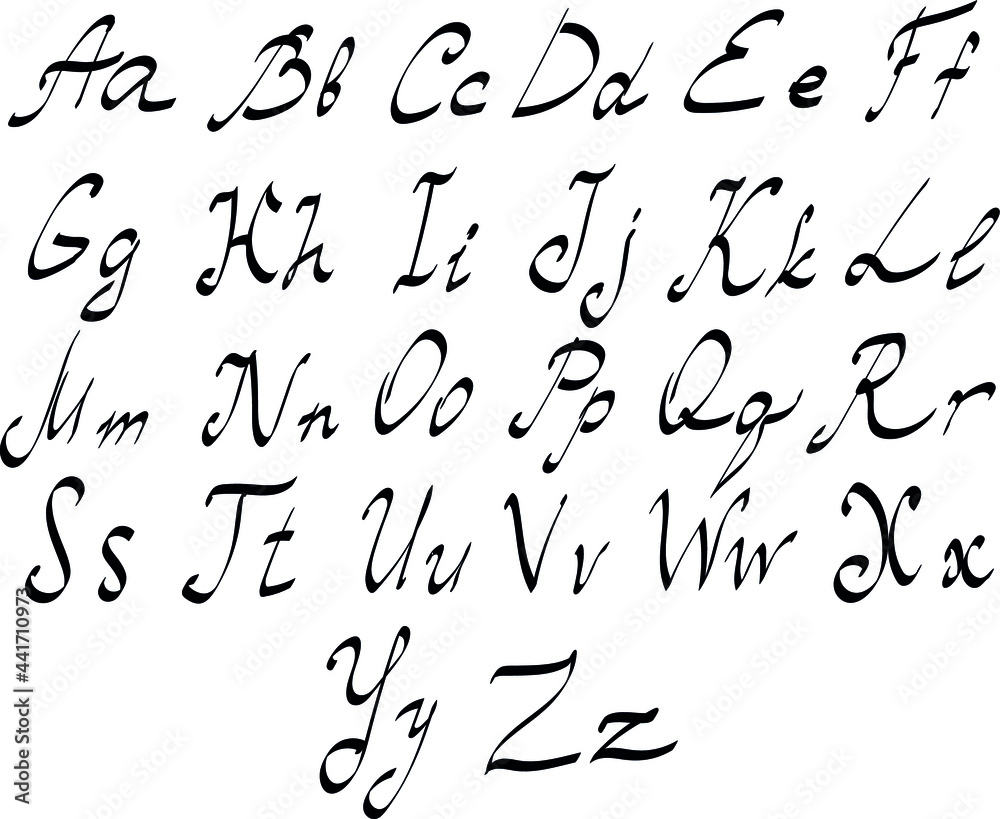 Aa Bb Cc Dd Ee Ff
Gg Hh Ii Jj Kk Ll
Mm Nn Oo Pp Qq Rr
Ss Tt Uu Vv Ww Xx
Yy Zz
Adobe Stock | #441710973